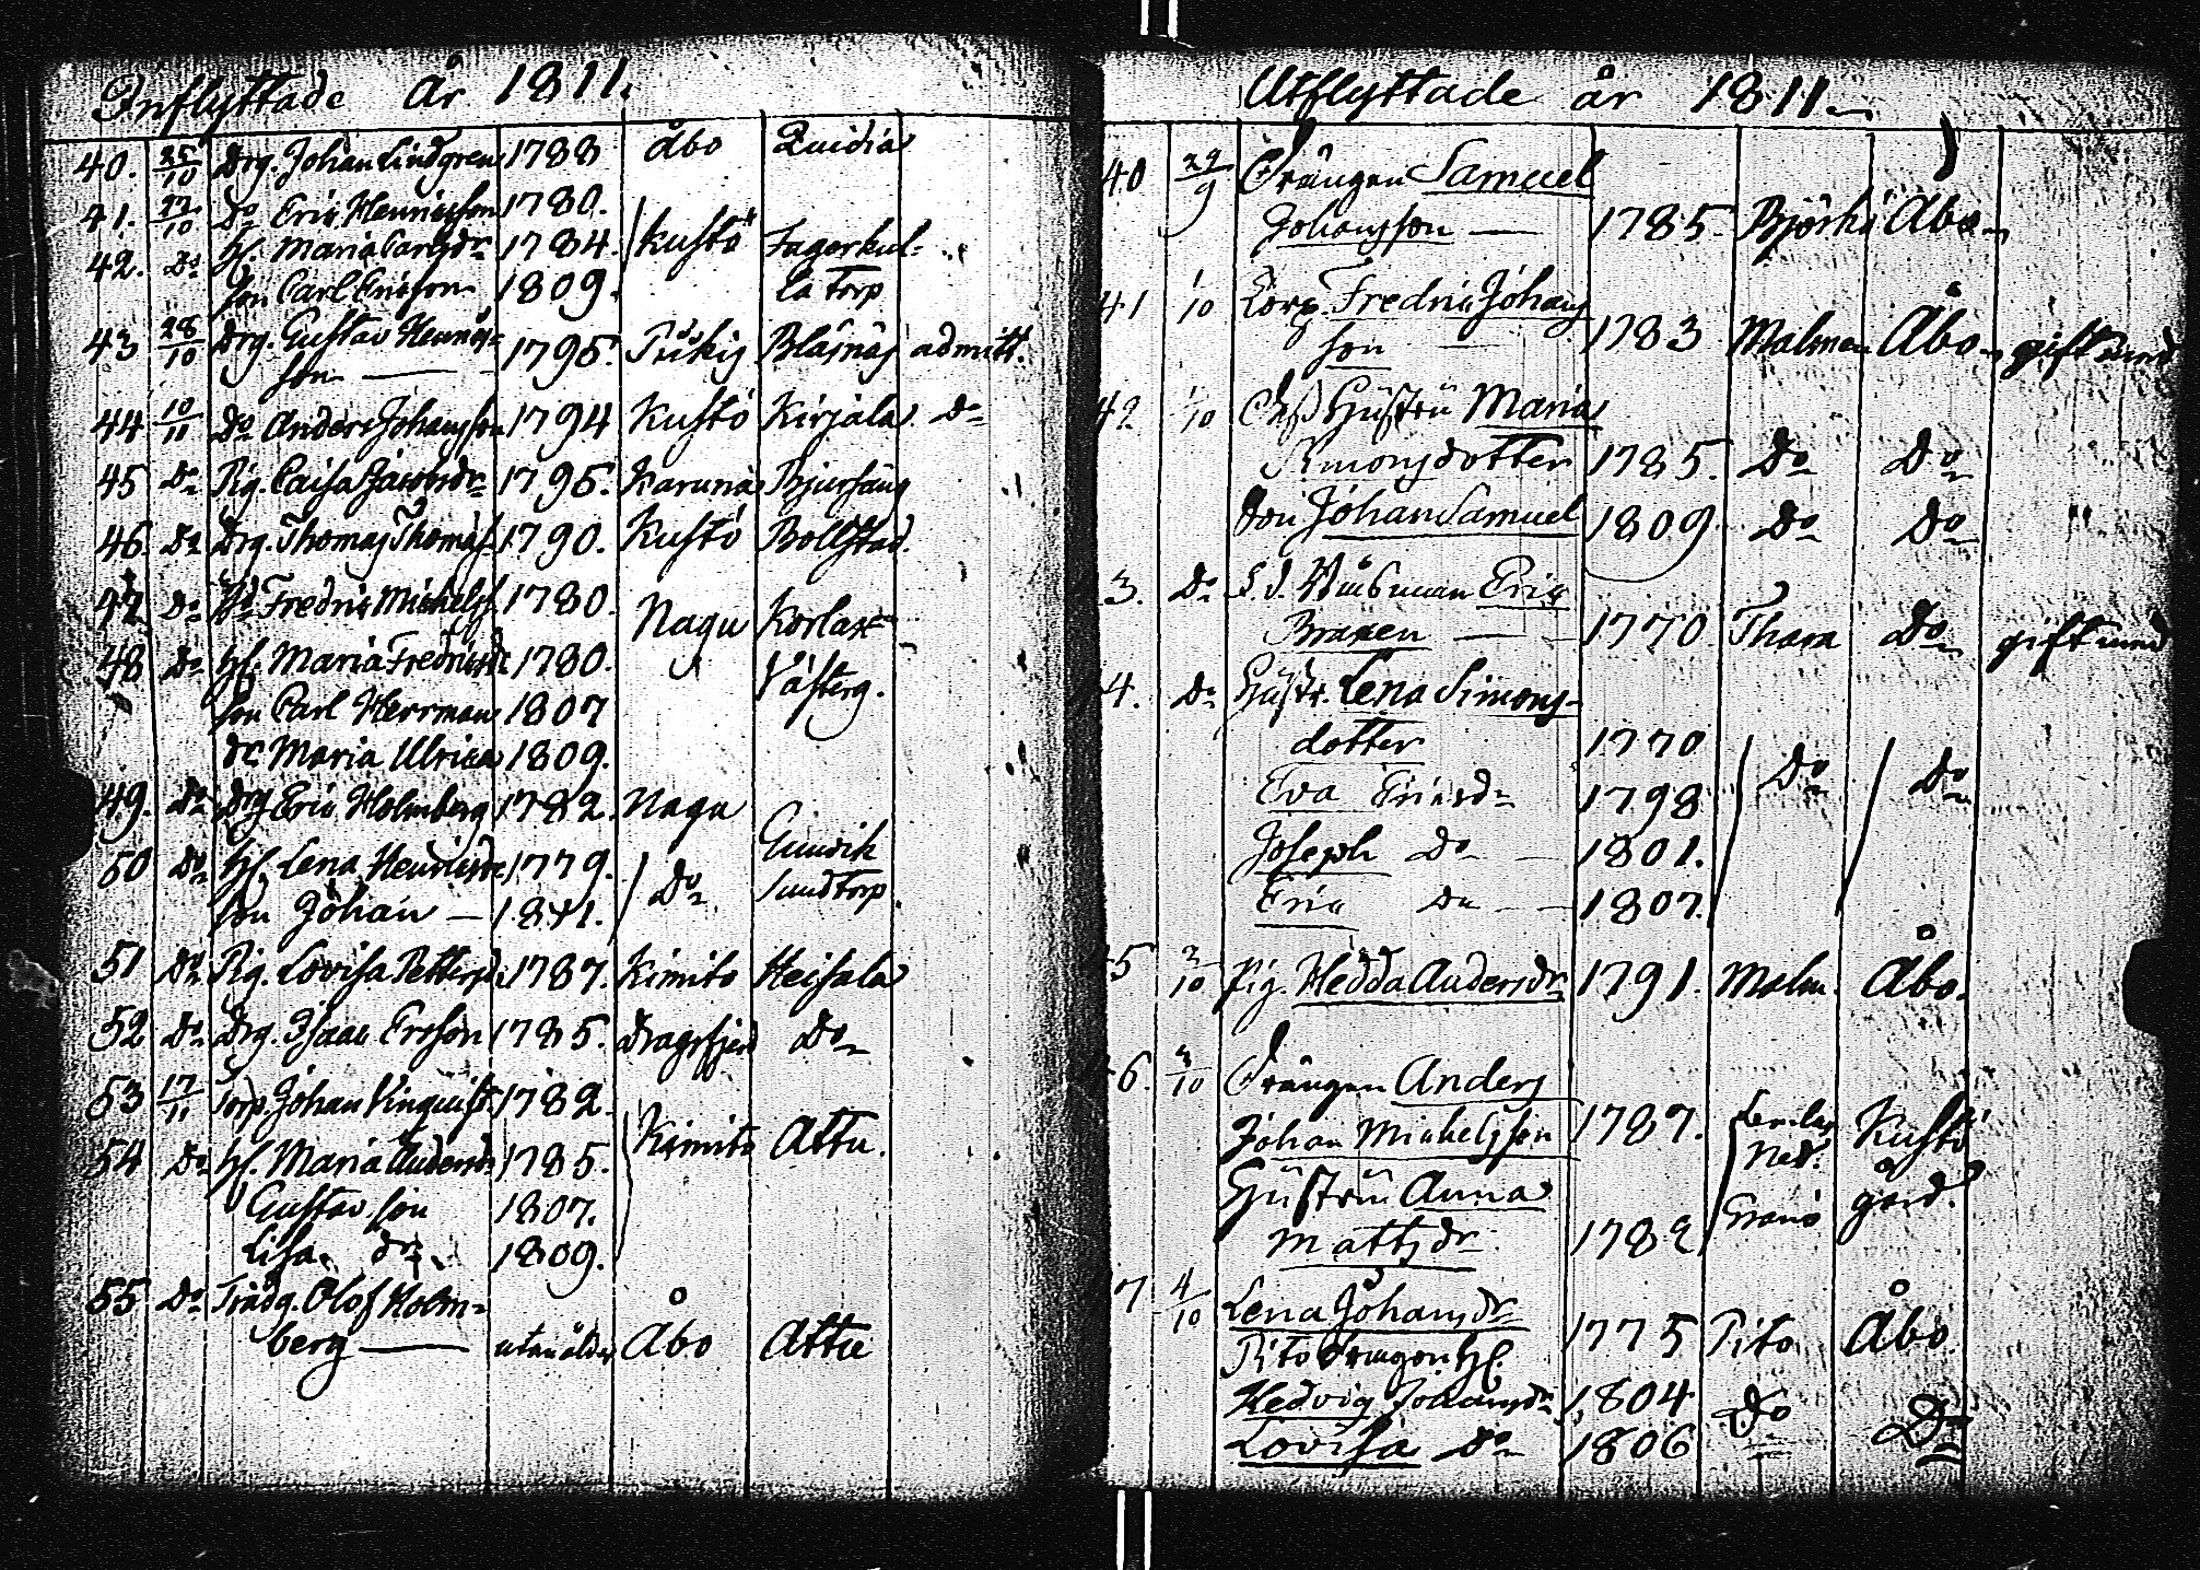 Inflyttade År 1811.
40. 25/10 Drg. Johan Lindgren 1788 Åbo Qvidia
41. 27/10 Do Eric Henricsson 1780.
42. Do H. Maria Carlsdr 1784. Kustö Fagerkul-
son Carl Ericsson 1809. la Torp
43 28/10 Drg. Gustav Henrics-
son — 1795. Piikis Blåsnäs admitt.
44 10/11 Do Anders Johansson 1794 Kustö Kirjala Do
45 Do Pig. Caisa Jacobsdr 1795. Karuna Bjursäng
46. Do Drg. Thomas Thomass. 1790. Kustö Bollstad.
47 Do Fredric Michelss. 1780. Nagu Korlax
48 Do H. Maria Fredricsdr 1780. Västerg.
son Carl Herrman 1807
dr Maria Ulrica 1809.
49. Do Drg Eric Holmberg 1782. Nagu
50 Do H. Lena Henricsdr 1779. Do
son Johan — 1811. sundtorp.
51 Do Pig. Lovisa Pettersd. 1787. Kimito Heisala
52 Do Drg. Isaac Ersson 1785. Dragsfjerd Do
53 17/11 Torp. Johan Vinquist 1782.
54 Do H. Maria Andersdr 1785. Kimito Attu.
Gustav son 1807.
Lisa dr 1809.
55 Do Trädg. Olof Holm-
berg — utan ålder Åbo Attu
Utflyttade år 1811.
40 29/9 Drängen Samuel
Johansson — 1785. Björkö Åbo
41 1/10 Torp. Fredric Johans
son — 1783 Malmen Åbo gift med
42 1/10 Dess Hustru Maria
Simonsdotter 1785. Do Do
Son Johan Samuel 1809. Do Do "
3. Do Eric
Braxen — 1770 Do gift med
4. Do Hustr. Lena Simons-
dotter 1770
Eva Ericsdr 1798 Do Do
Joseph Do — 1801.
Eric Do — 1807.
5 2/10 Pig. Hedda Andersdr 1791. Malm. Åbo.
6. 3/10 Drängen Anders
Johan Michelsson 1787. Kustö
Hustru Anna gård.
Mattsdr 1782
7 4/10 Lena Johansdr
Pito Dragon H. 1775 Pito Åbo.
Hedvig Johansdr 1804 Do Do
Lovisa Do 1806